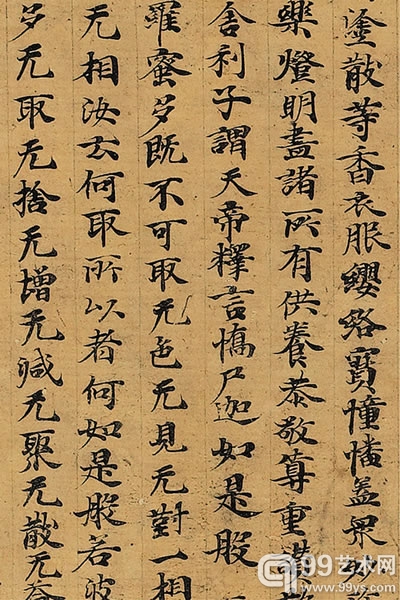 塗散等香衣服纓絡寶幢幡盖衆
樂燈明盡諸所有供養恭敬尊重讃
舍利子謂天帝釋言憍尸迦如是般
羅蜜多既不可取无色无見无對一相
无相汝云何取所以者何如是般若波
多无取无捨无增无減无聚无散无
99艺术网
www.99ys.com